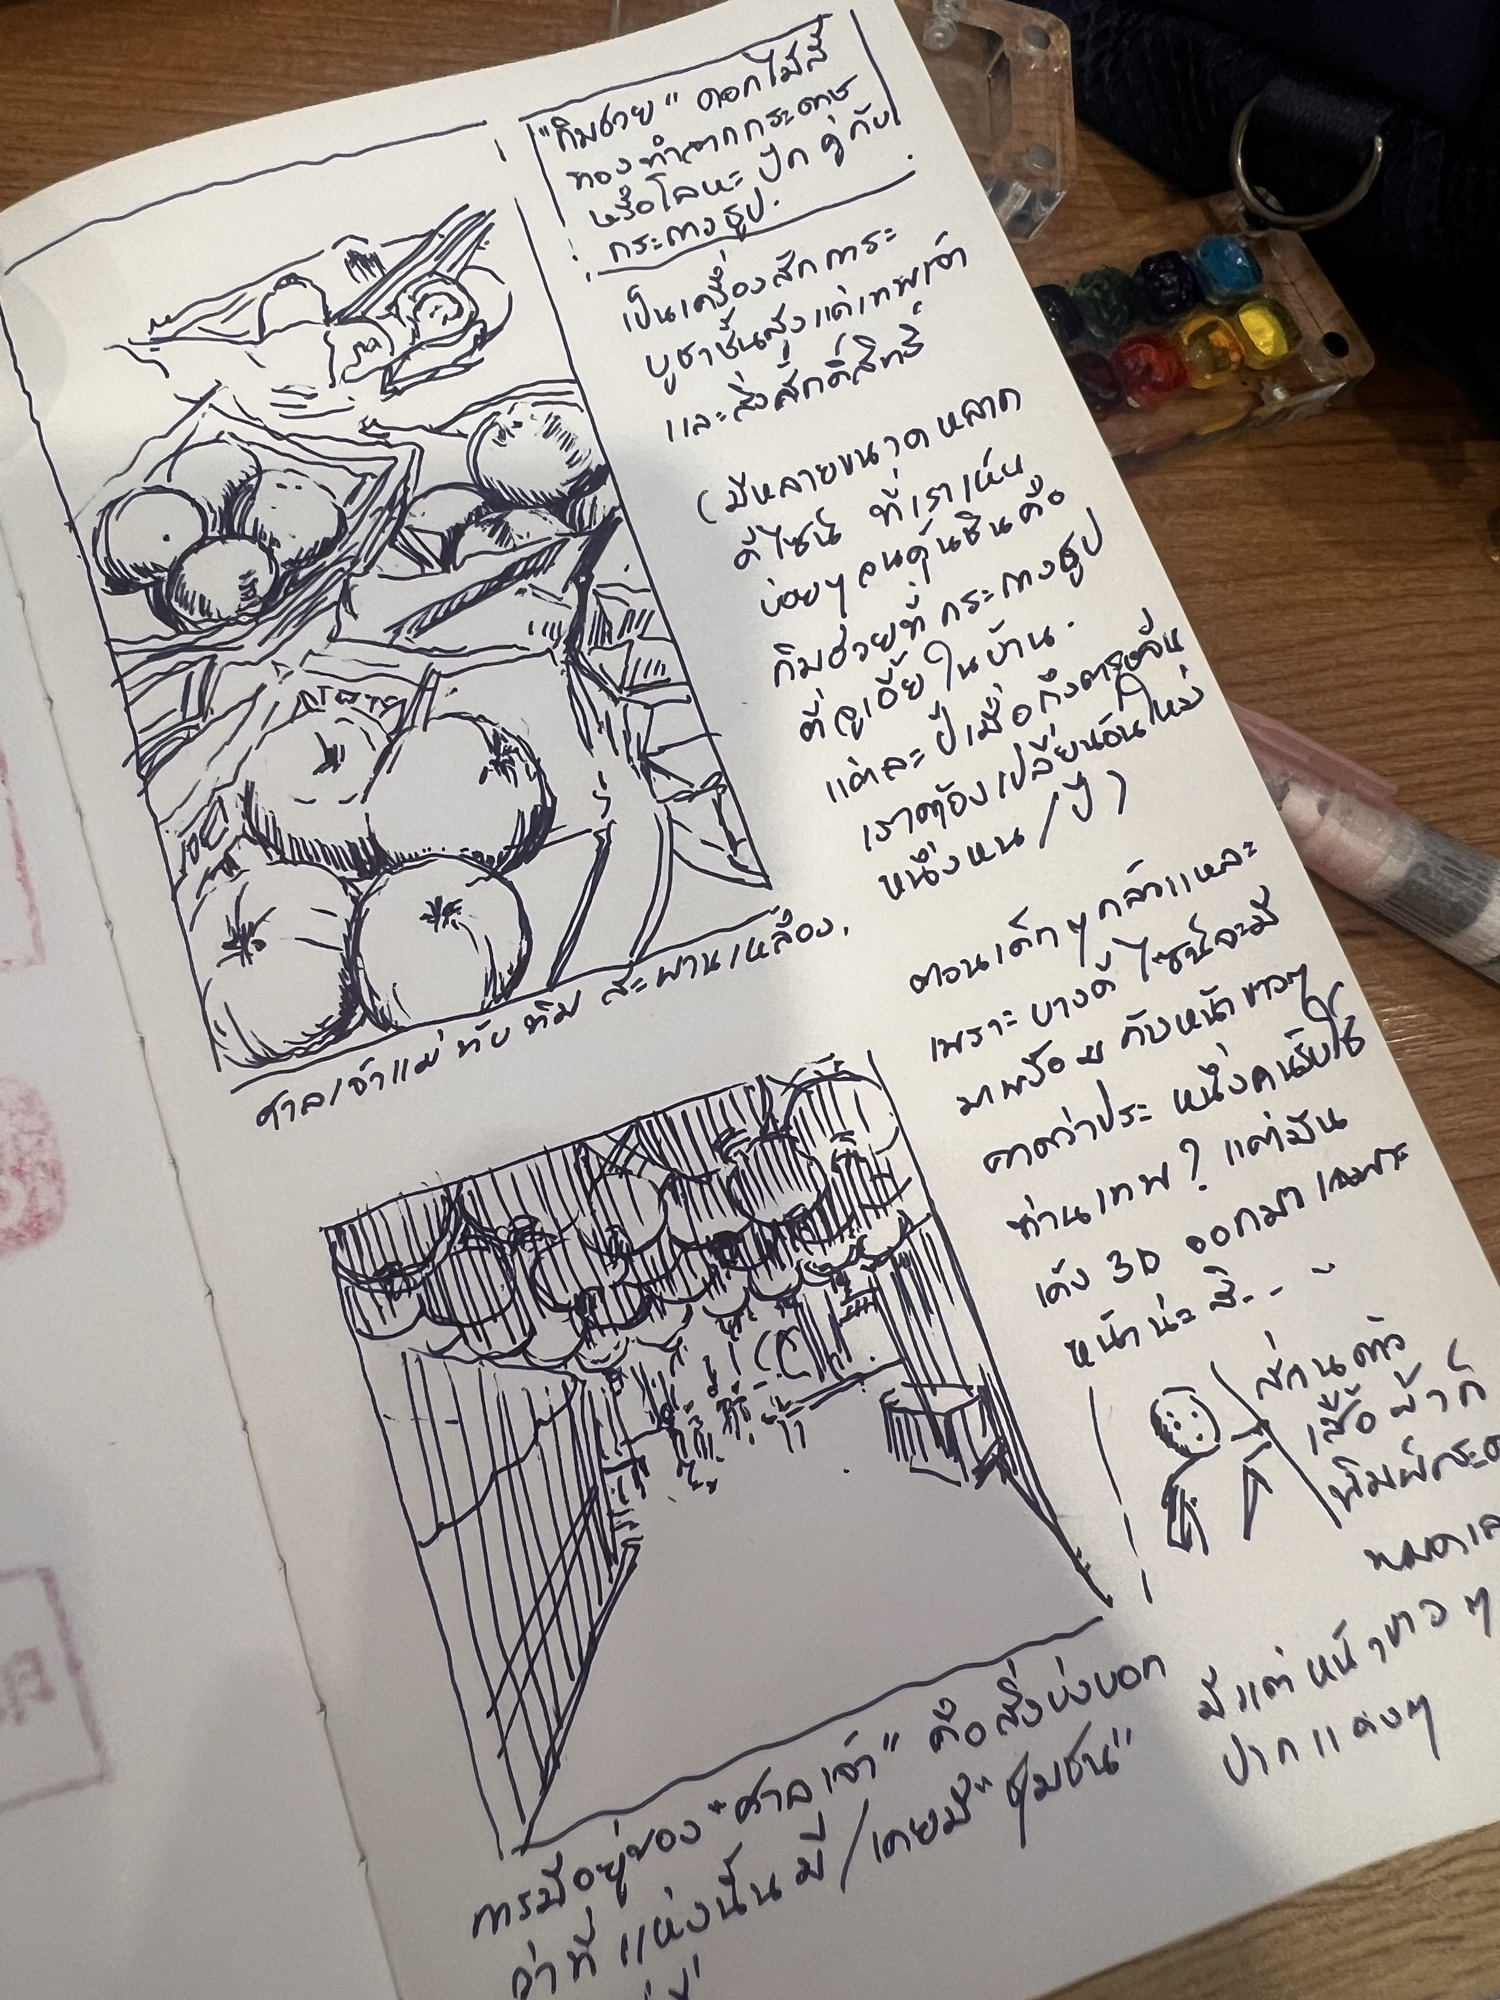 "กิมฮวย" ดอกไม้สี
ทองทำจากกระดาษ
หรือโลหะ ปักคู่กับ
กระถางธูป.
เป็นเครื่องสักการะ
บูชาชั้นสูงแด่เทพเจ้า
และสิ่งศักดิ์สิทธิ์
(มีหลายขนาดหลาก
ดีไซน์ ที่เราเห็น
บ่อยๆจนคุ้นชินคือ
กิมฮวยที่กระถางธูป
ตี่จูเอี้ยในบ้าน.
แต่ละปีเมื่อถึงตรุษจีน
เราต้องเปลี่ยนอันใหม่
หนึ่งหน/ปี)
ตอนเด็กๆกลัวแหละ
เพราะบางดีไซน์จะมี
มาพร้อมกับหน้าขาวๆ
คาดว่าประ หนึ่งคนรับใช้
ท่านเทพ? แต่มัน
เด้ง 3D ออกมาเฉพาะ
หน้าน่ะสิ..
ส่วนตัว
เสื้อผ้าก็
พิมพ์กระด
มีแต่หน้าขาวๆ
ปากแดงๆ
ศาลเจ้าแม่ทับทิม สะพานเหลือง.
การมีอยู่ของ "ศาลเจ้า" คือสิ่งบ่งบอก
ว่าที่แห่งนั้นมี/เคยมี "ชุมชน"